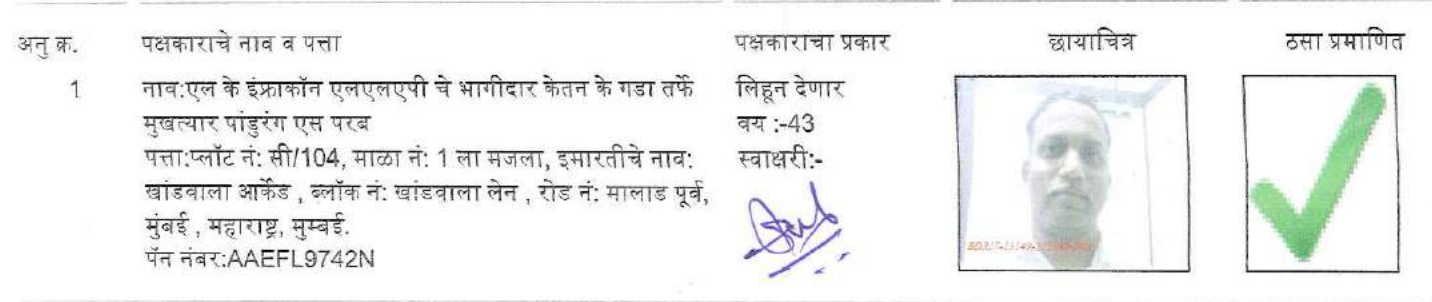 अनु क्र. पक्षकाराचे नाव व पत्ता पक्षकाराचा प्रकार छायाचित्र ठसा प्रमाणित
1 नाव:एल के इंफ्राकॉन एलएलएपी चे भागीदार केतन के गडा तर्फे लिहून देणार
मुखत्यार पांडुरंग एस परब वय :-43
पत्ता:प्लॉट नं: सी/104, माळा नं: 1 ला मजला, इमारतीचे नाव: स्वाक्षरी:-
खांडवाला आर्केड , ब्लॉक नं: खांडवाला लेन , रोड नं: मालाड पूर्व,
मुंबई , महाराष्ट्र, मुम्बई.
पॅन नंबर:AAEFL9742N